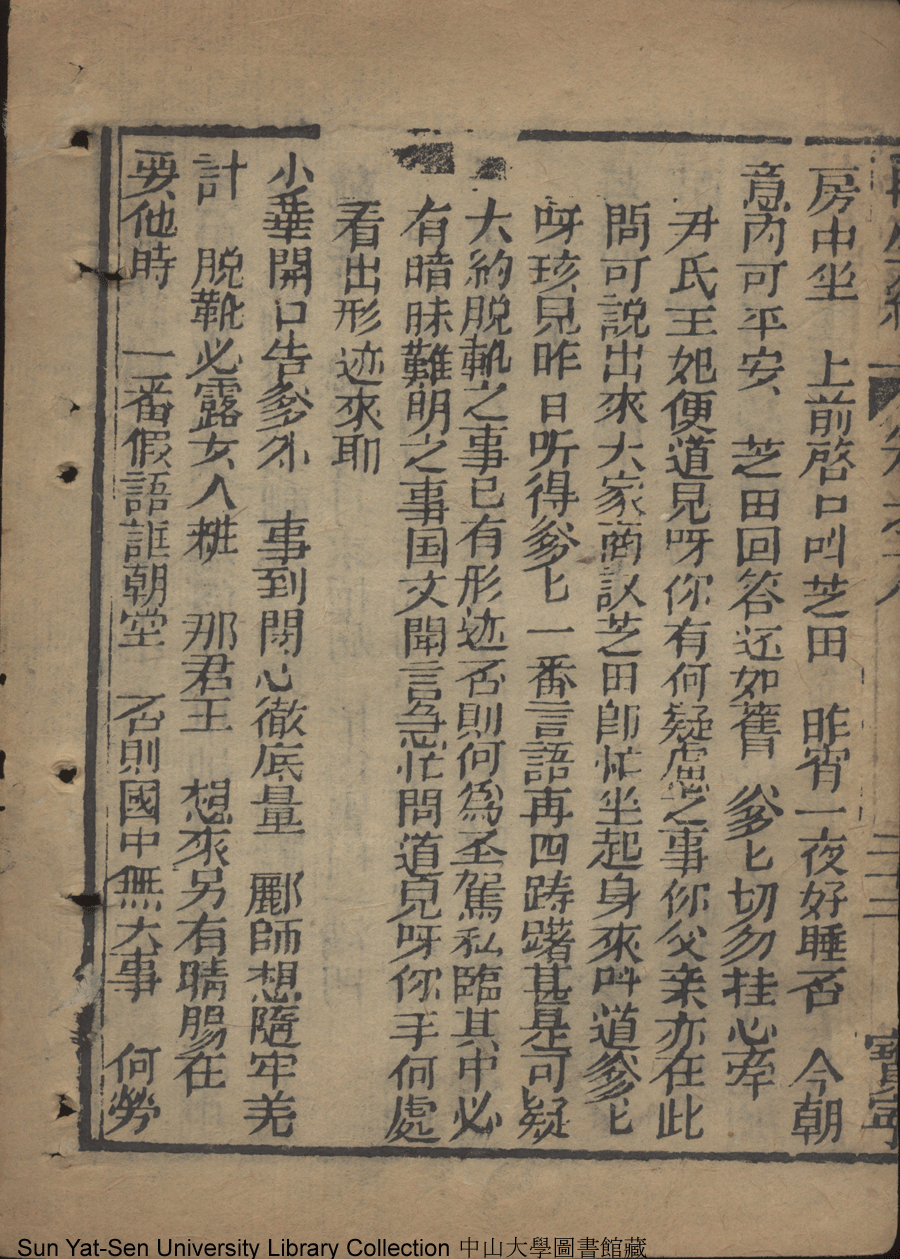 房中坐　上前啓口叫芝田　昨宵一夜好睡否　今朝
意內可平安、　芝田回答还如舊　爹匕切勿挂心牽
尹氏王妃便道見呀你有何疑慮之事你父亲亦在此
問可説出來大家商議芝田即忙坐起身來叫道爹匕
呀孩見昨日听得爹匕一番言語再四踌躇甚是可疑
大約脱靴之事已有形迹否則何為圣駕私臨其中必
有暗昧難明之事国丈聞言急忙問道見呀你于何處
看出形迹來耶
小華開口告爹爷　事到関心徹底量　酈師想隨牢羌
計　脱靴必露女人粧　那君王　想來另有晴腸在
要他時　一番假語誆朝堂　否則國中無大事　何勞
二十三
寶寧
Sun Yat-Sen University Library Collection 中山大學圖書館藏